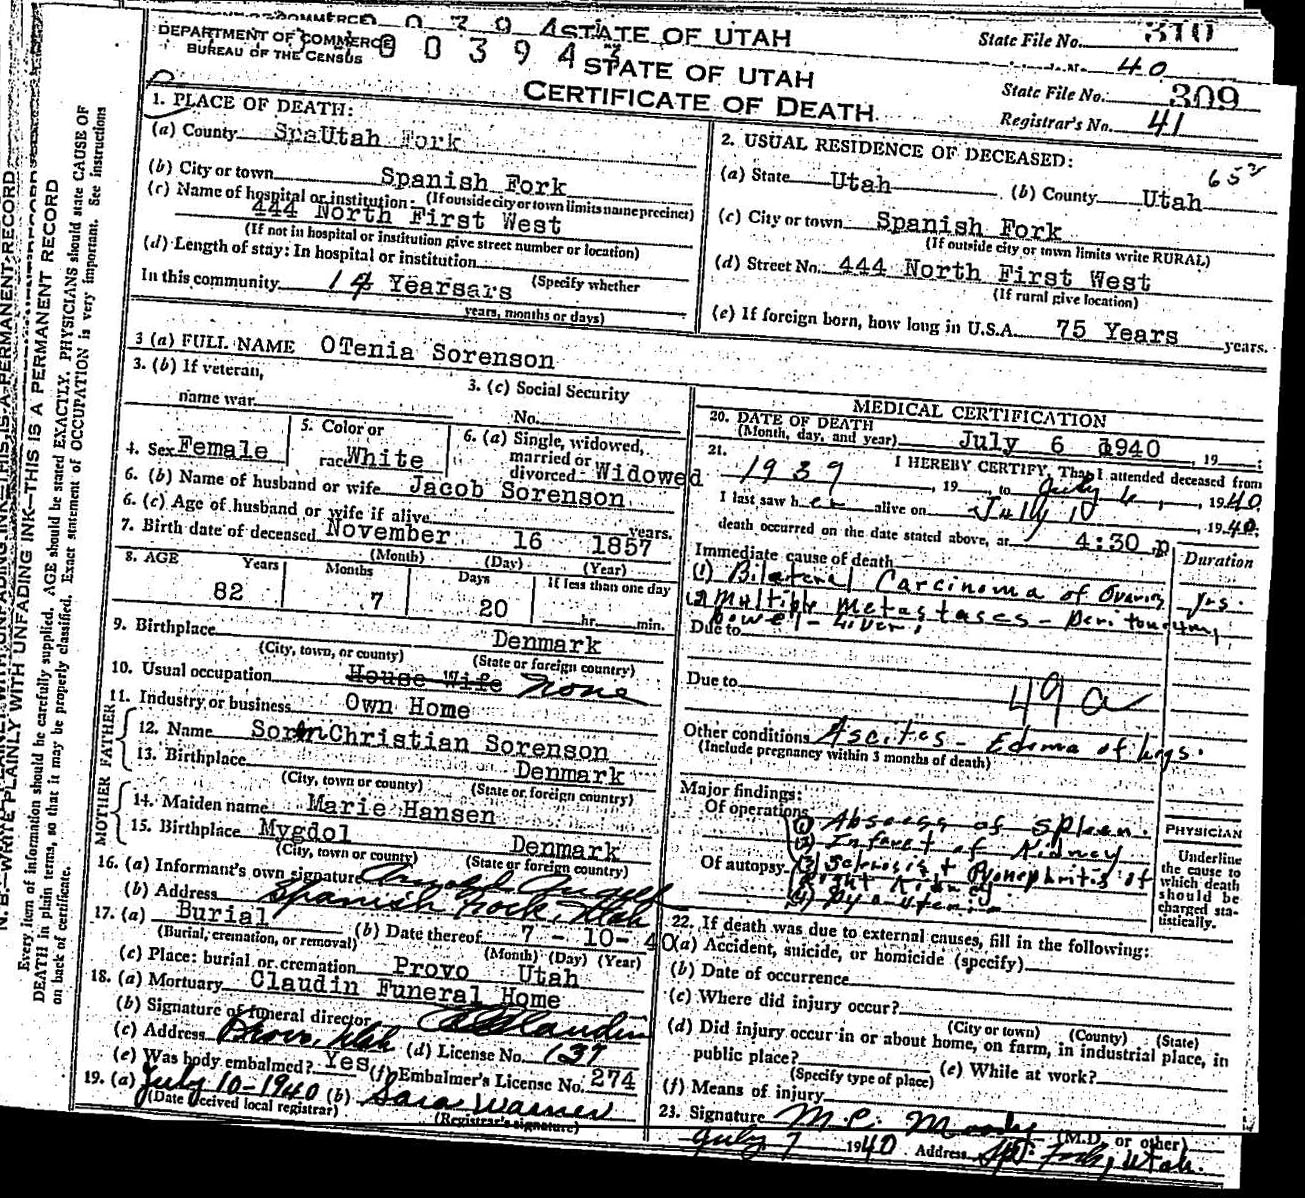 STATE OF UTAH
State File No. 310
40
DEPARTMENT OF COMMERCE
BUREAU OF THE CENSUS
STATE OF UTAH
CERTIFICATE OF DEATH
State File No. 309
Registrar's No. 41
1. PLACE OF DEATH:
(a) County Utah
(b) City or town Spanish Fork
(If outside city or town limits name precinct)
(c) Name of hospital or institution:
444 North First West
(If not in hospital or institution give street number or location)
(d) Length of stay: In hospital or institution
(Specify whether
In this community 14 Years
years, months or days)
2. USUAL RESIDENCE OF DECEASED:
(a) State Utah (b) County Utah
(c) City or town Spanish Fork
(If outside city or town limits write RURAL)
(d) Street No. 444 North First West
(If rural give location)
(e) If foreign born, how long in U.S.A. 75 Years years.
3 (a) FULL NAME OTenia Sorenson
3. (b) If veteran,
name war
3. (c) Social Security
No.
4. Sex Female
5. Color or
race White
6. (a) Single, widowed,
married or
divorced Widowed
6. (b) Name of husband or wife Jacob Sorenson
6. (c) Age of husband or wife if alive years.
7. Birth date of deceased November 16 1857
(Month) (Day) (Year)
8. AGE Years Months Days If less than one day
82 7 20 hr. min.
9. Birthplace Denmark
(City, town, or county) (State or foreign country)
10. Usual occupation House Wife None
11. Industry or business Own Home
FATHER
12. Name Soren Christian Sorenson
13. Birthplace Denmark
(City, town or county) (State or foreign country)
MOTHER
14. Maiden name Marie Hansen
15. Birthplace Mygdol Denmark
(City, town or county) (State or foreign country)
16. (a) Informant's own signature
(b) Address Spanish Fork, Utah
17. (a) Burial (b) Date thereof 7 - 10 - 40
(Burial, cremation, or removal) (Month) (Day) (Year)
(c) Place: burial or cremation Provo Utah
18. (a) Mortuary Claudin Funeral Home
(b) Signature of funeral director
(c) Address Provo, Utah (d) License No. 137
(e) Was body embalmed? Yes (f) Embalmer's License No. 274
19. (a) July 10-1940 (b) Sara Warner
(Date received local registrar) (Registrar's signature)
MEDICAL CERTIFICATION
20. DATE OF DEATH
(Month, day, and year) July 6 1940, 19
21. I HEREBY CERTIFY, That I attended deceased from
1939, 19 to July 6, 1940
I last saw her alive on July, 1940
death occurred on the date stated above, at 4:30 p
Immediate cause of death Duration
(1) Bilateral Carcinoma of Ovaries yrs.
(2) Multiple Metastases - Peritoneum,
bowel - Liver.
Due to
Due to 49a
Other conditions Ascites - Edema of legs.
(Include pregnancy within 3 months of death)
Major findings:
Of operations (1) Abscess of Spleen.
(2) Infarct of Kidney
Of autopsy (3) Sclerosis + Pyonephritis of
Right Kidney
(4)
PHYSICIAN
Underline
the cause to
which death
should be
charged sta-
tistically.
22. If death was due to external causes, fill in the following:
(a) Accident, suicide, or homicide (specify)
(b) Date of occurrence
(c) Where did injury occur?
(City or town) (County) (State)
(d) Did injury occur in or about home, on farm, in industrial place, in
public place? (e) While at work?
(Specify type of place)
(f) Means of injury
23. Signature M. C. Moody
(M.D. or other)
July 7 1940 Address Sp. Fork, Utah.
N. B.—WRITE PLAINLY WITH UNFADING INK—THIS IS A PERMANENT RECORD
Every item of information should be carefully supplied. AGE should be stated EXACTLY. PHYSICIANS should state CAUSE OF
DEATH in plain terms, so that it may be properly classified. Exact statement of OCCUPATION is very important. See instructions
on back of certificate.